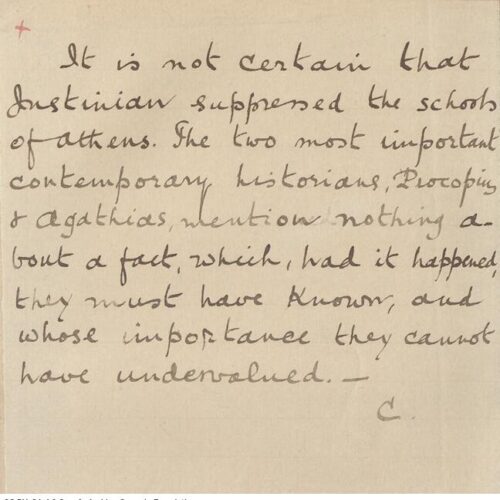 It is not certain that
Justinian suppressed the schools
of Athens. The two most important
contemporary historians, Procopius
& Agathias, mention nothing a-
bout a fact, which, had it happened,
they must have known, and
whose importance they cannot
have undervalued. —
C.